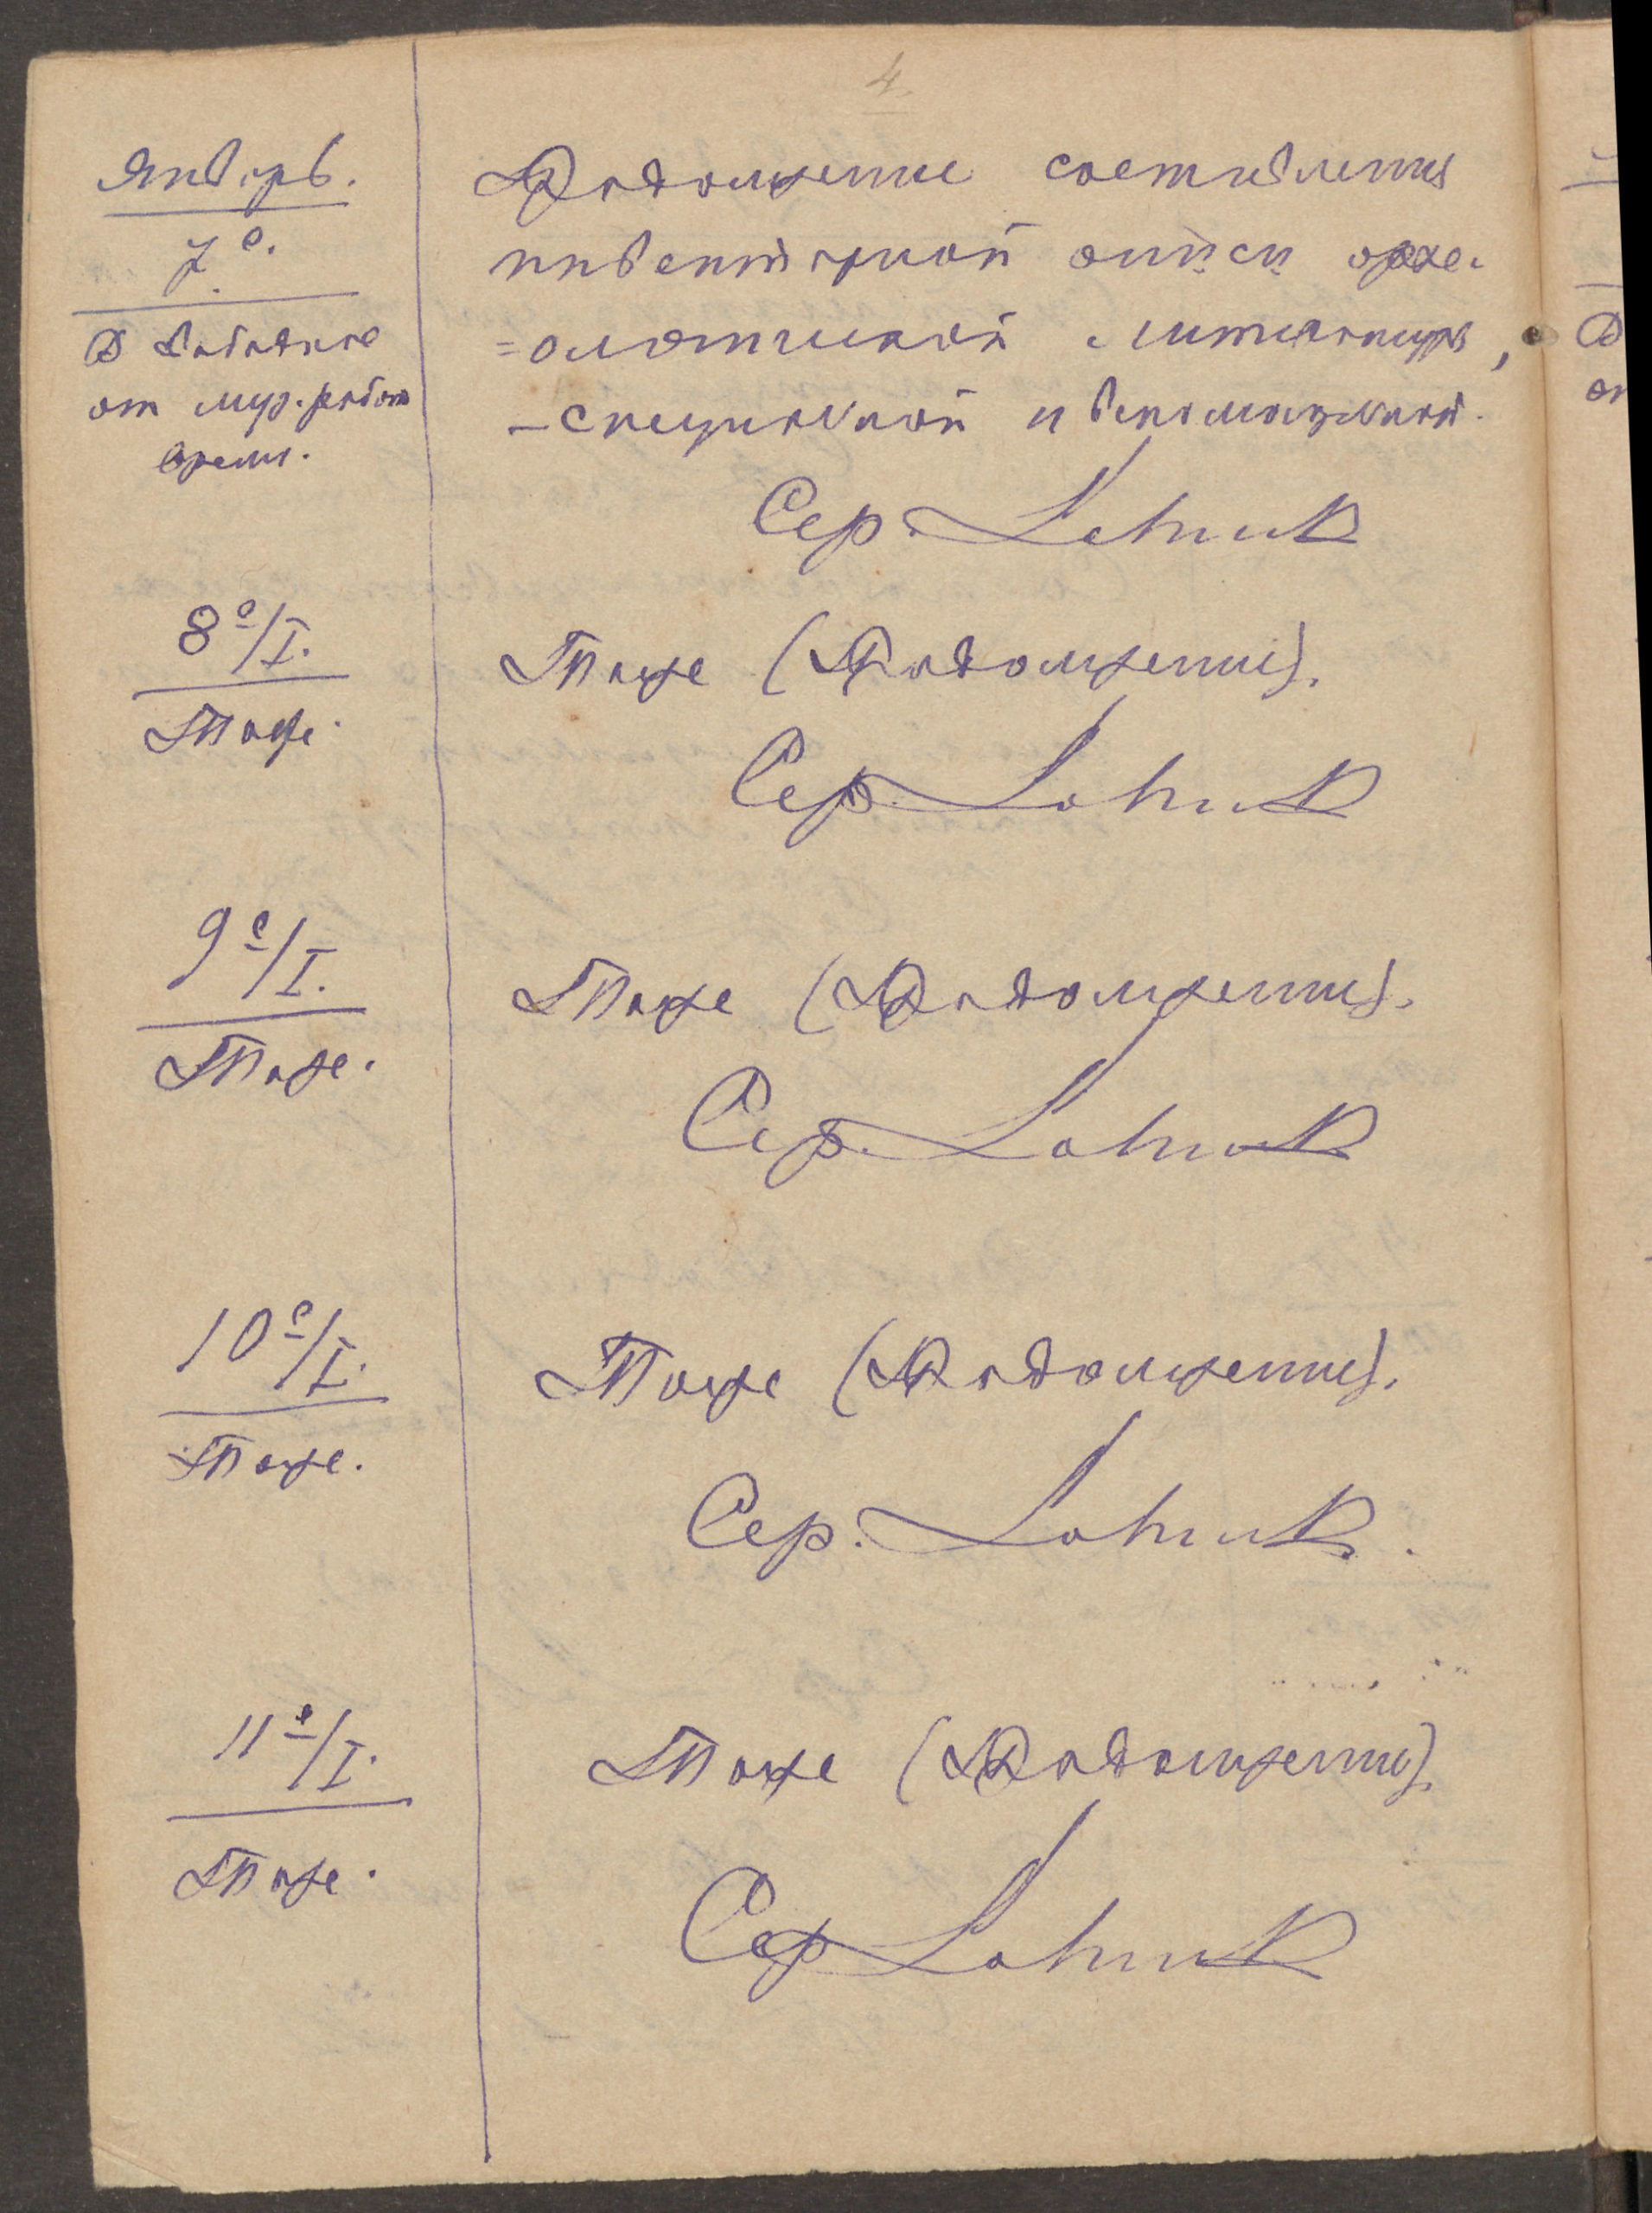 4.
Январь.
7е.
В свободное
от муз. работ
время.
Продолжение составления
инвентарной описи архе-
=ологической литературы,
– специальной и вспомогательной.
Сер.
8е/I.
Тоже.
Тоже (Продолжение).
Сер.
9е/I.
Тоже.
Тоже (Продолжение).
Сер.
10е/I.
Тоже.
Тоже (Продолжение).
Сер.
11е/I.
Тоже.
Тоже (Продолжение).
Сер.